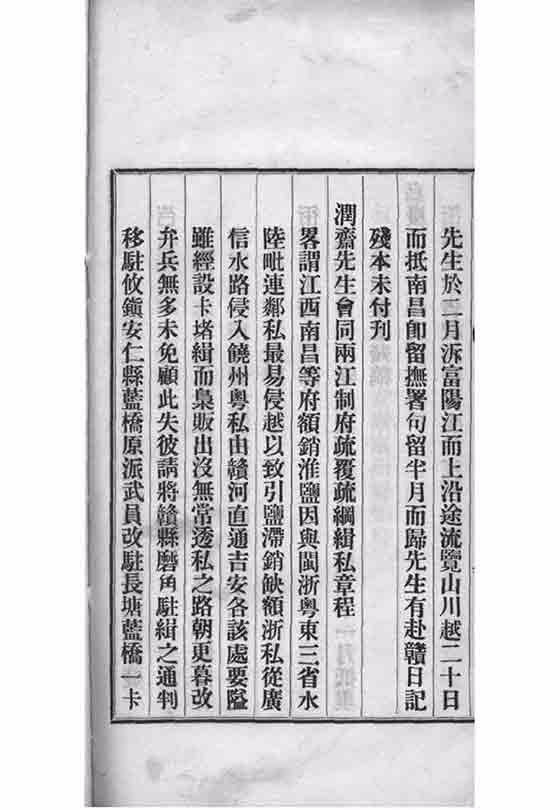 先生於二月泝富陽江而上沿途流覽山川越二十日
而抵南昌卽留撫署句留半月而歸先生有赴贛日記
殘本未付刊
潤齋先生會同兩江制府疏覆疏綱緝私章程
畧謂江西南昌等府額銷淮鹽因與閩浙粵東三省水
陸毗連鄰私最易侵越以致引鹽滯銷缺額浙私從廣
信水路侵入饒州粵私由贛河直通吉安各該處要隘
雖經設卡堵緝而梟販出沒無常透私之路朝更暮改
弁兵無多未免顧此失彼請將贛縣磨角駐緝之通判
移駐攸鎭安仁縣藍橋原派武員改駐長塘藍橋一卡